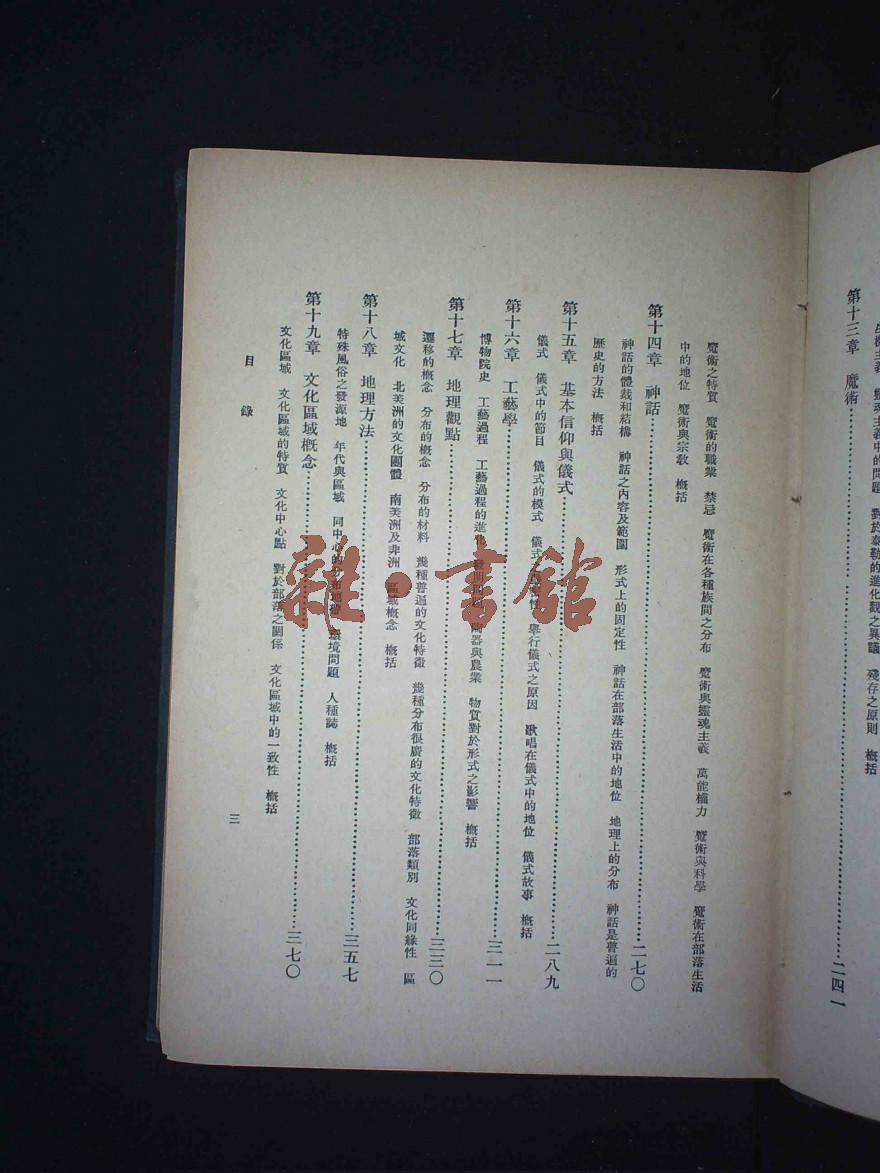 生機主義　靈魂主義中的問題　對於泰勒的進化觀之異議　殘存之原則　概括
第十三章　魔術……二四一
魔術之特質　魔術的職業　禁忌　魔術在各種族間之分布　魔術與靈魂主義　萬能權力　魔術與科學　魔術在部落生活
中的地位　魔術與宗教　概括
第十四章　神話……二七〇
神話的體裁和結構　神話之內容及範圍　形式上的固定性　神話在部落生活中的地位　地理上的分布　神話是普遍的
歷史的方法　概括
第十五章　基本信仰與儀式……二八九
儀式　儀式中的節目　儀式的模式　儀式之　舉行儀式之原因　歌唱在儀式中的地位　儀式故事　概括
第十六章　工藝學……三一一
博物院史　工藝過程　工藝過程的進化　陶器與農業　物質對於形式之影響　概括
第十七章　地理觀點……三三〇
遷移的概念　分布的概念　分布的材料　幾種普遍的文化特徵　幾種分布很廣的文化特徵　部落類別　文化同緣性　區
域文化　北美洲的文化團體　南美洲及非洲　區域概念　概括
第十八章　地理方法……三五七
特殊風俗之發源地　年代與區域　同中心的分布地帶　環境問題　人種誌　概括
第十九章　文化區域概念……三七〇
文化區域　文化區域的特質　文化中心點　對於部落之關係　文化區域中的一致性　概括
目錄
三
雜·書館